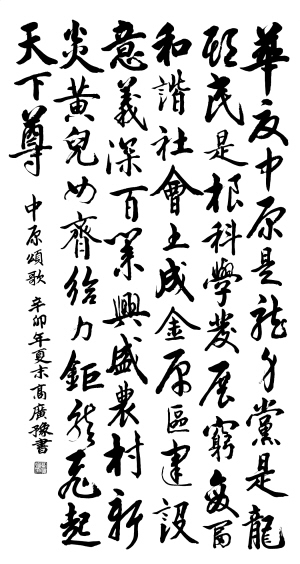 華夏中原是龙身黨是龍
頭民是根科學發展窮變富
和諧社會土成金原區建設
意義深百業興盛農村新
炎黃兒女齊給力鉅龍飛起
天下尊
中原頌歌 辛卯年夏末高廣豫書